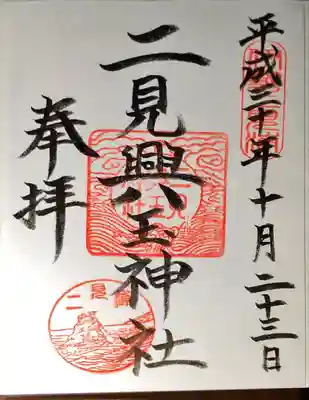 平成三十年十月二十三日
二見興玉神社
奉拝
二見浦